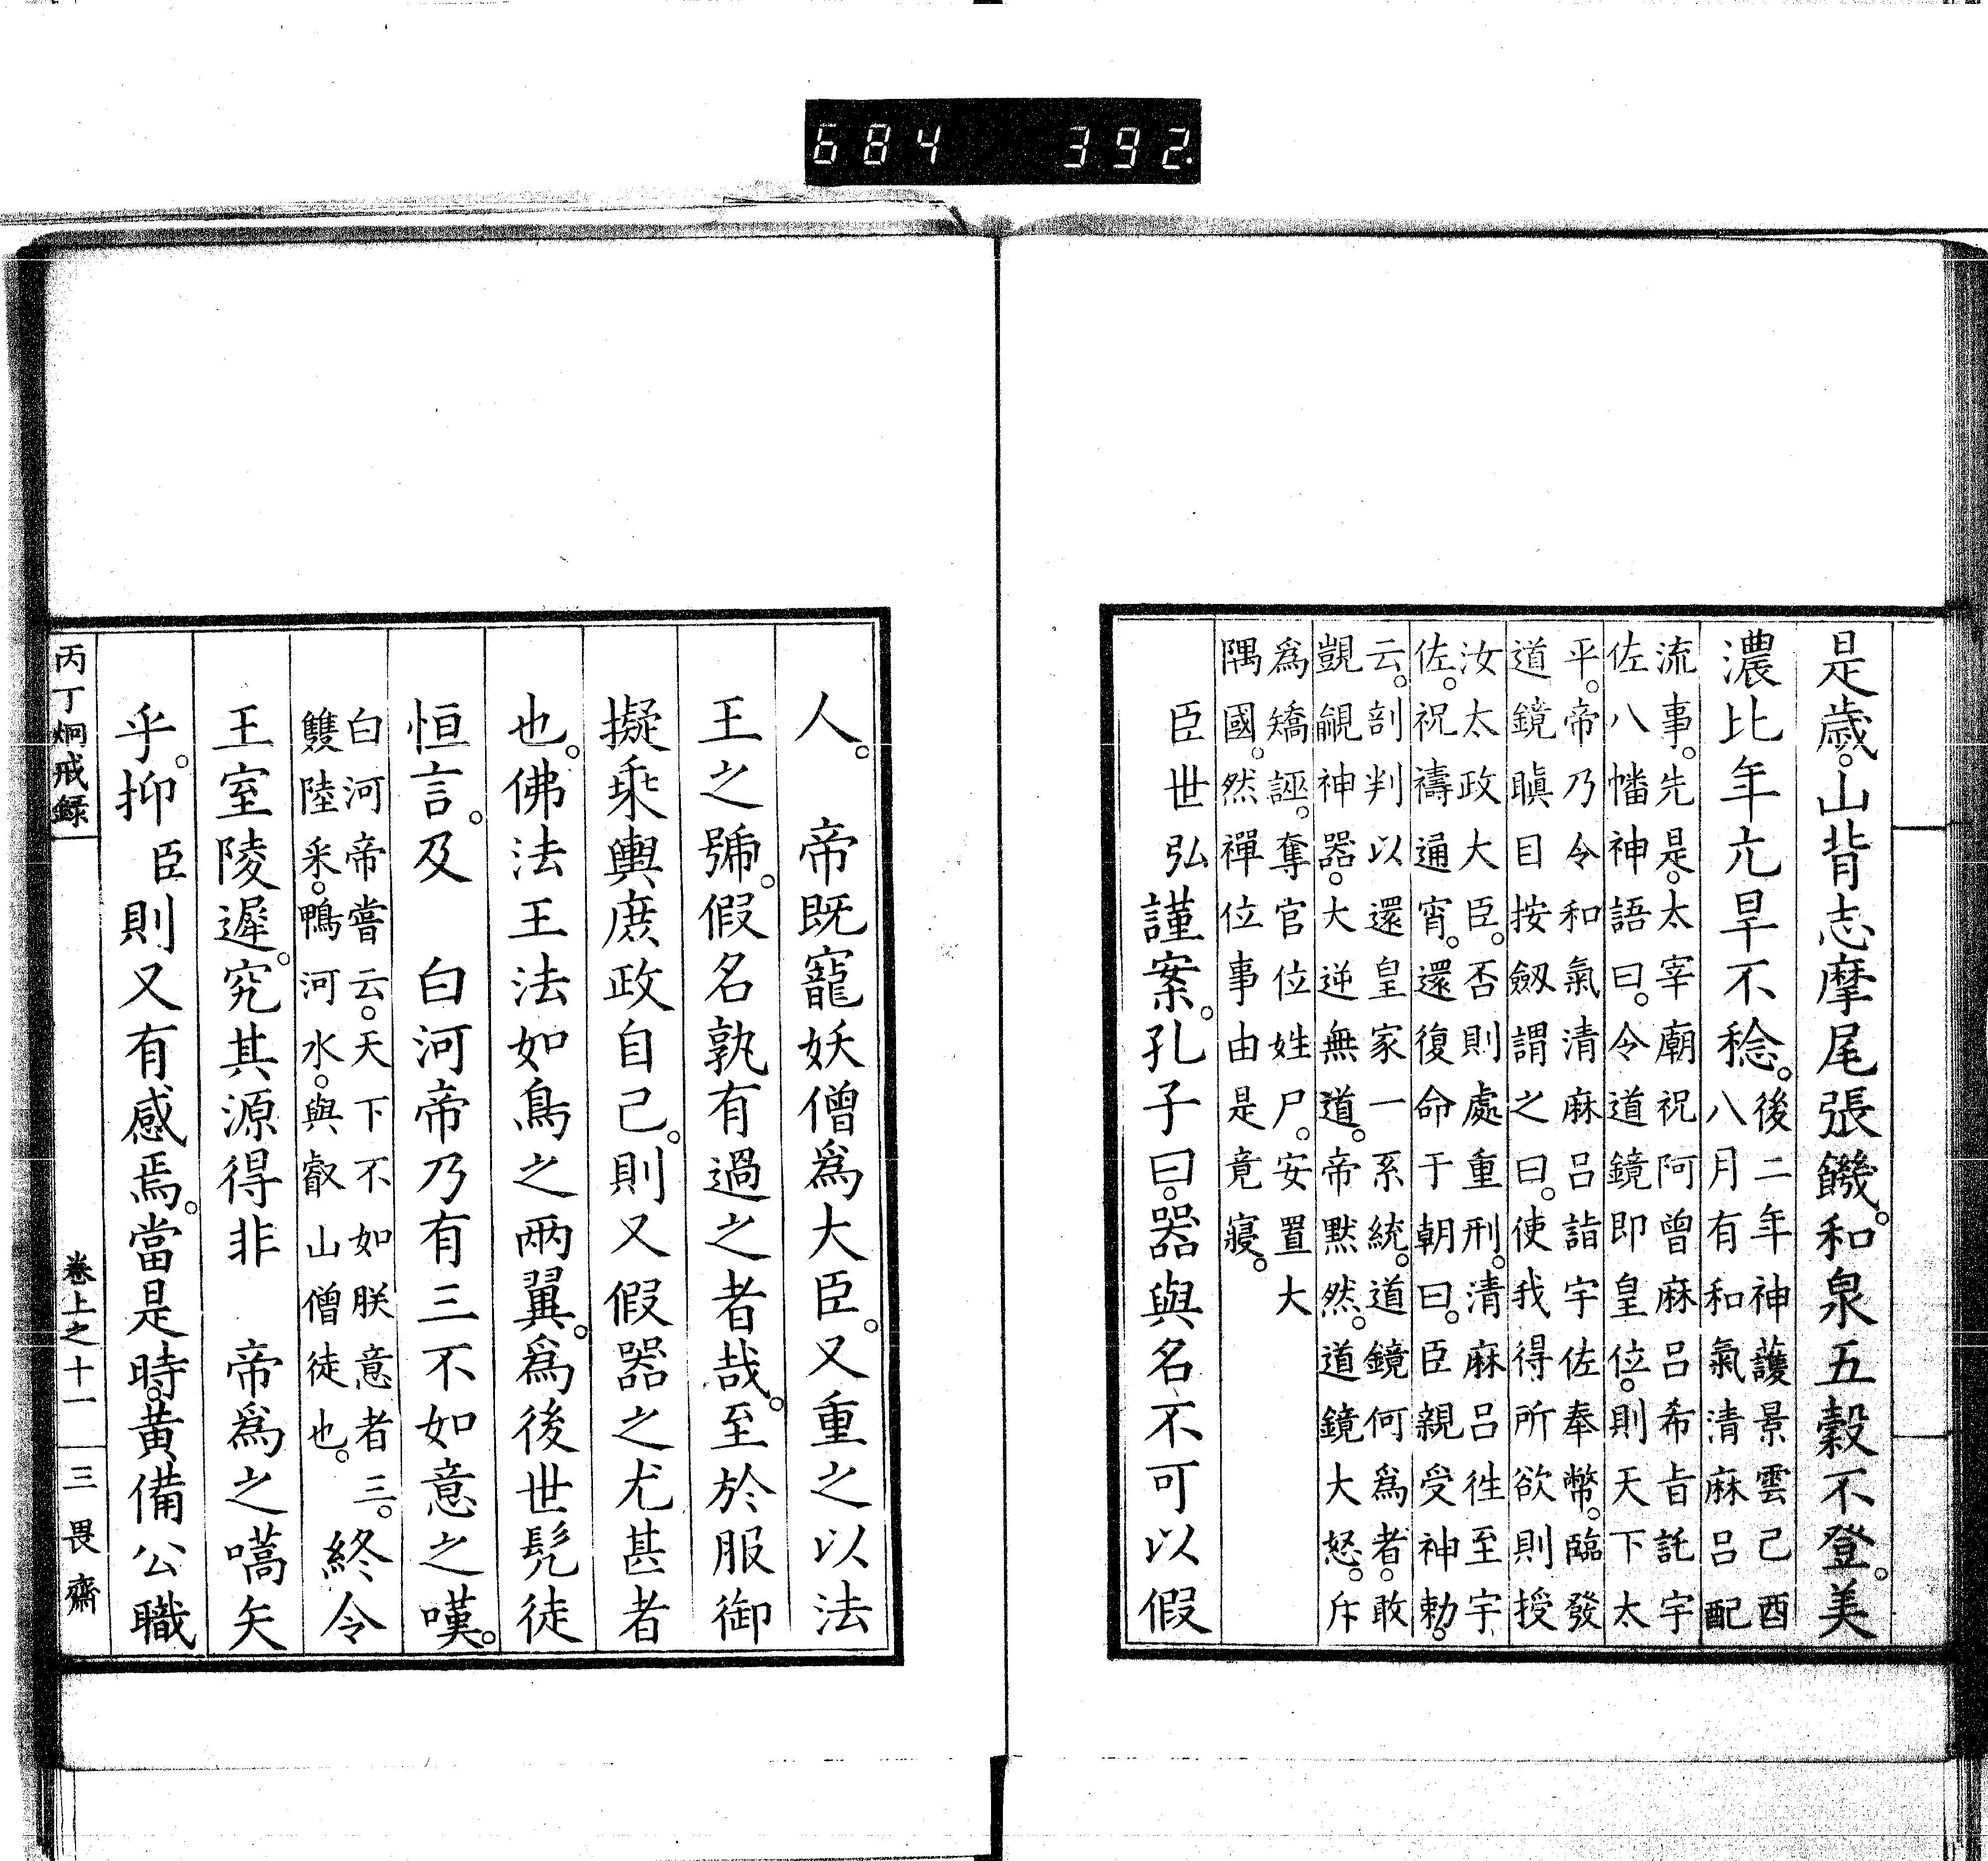 684 392
是歳。山背志摩尾張饑。和泉五穀不登。美
濃比年亢旱不稔。
後二年神護景雲己酉
八月有和氣清麻呂配
流事。先是。太宰廟祝阿曾麻呂希旨託宇
佐八幡神語曰。令道鏡即皇位。則天下太
平。帝乃令和氣清麻呂詣宇佐奉幣。臨發
道鏡瞋目按劔謂之曰。使我得所欲則授
汝太政大臣。否則處重刑。清麻呂徃至宇
佐。祝禱通宵。還復命于朝曰。臣親受神勅。
云。剖判以還皇家一系統。道鏡何爲者。敢
覬覦神器。大逆無道。帝默然。道鏡大怒。斥
爲矯誣。奪官位姓尸。安置大
隅國。然禪位事由是竟寢。
臣世弘謹案。孔子曰。器與名不可以假
人。 帝既寵妖僧爲大臣。又重之以法
王之號。假名孰有過之者哉。至於服御
擬乘輿庶政自己。則又假器之尤甚者
也。佛法王法如鳥之兩翼。爲後世髠徒
恒言。及 白河帝乃有三不如意之嘆。
白河帝嘗云。天下不如朕意者三。
雙陸采。鴨河水。與叡山僧徒也。
終令
王室陵遲。究其源得非 帝爲之嚆矢
乎。抑臣則又有感焉。當是時。黄備公職
丙丁烱戒録
卷上之十一
三畏齋